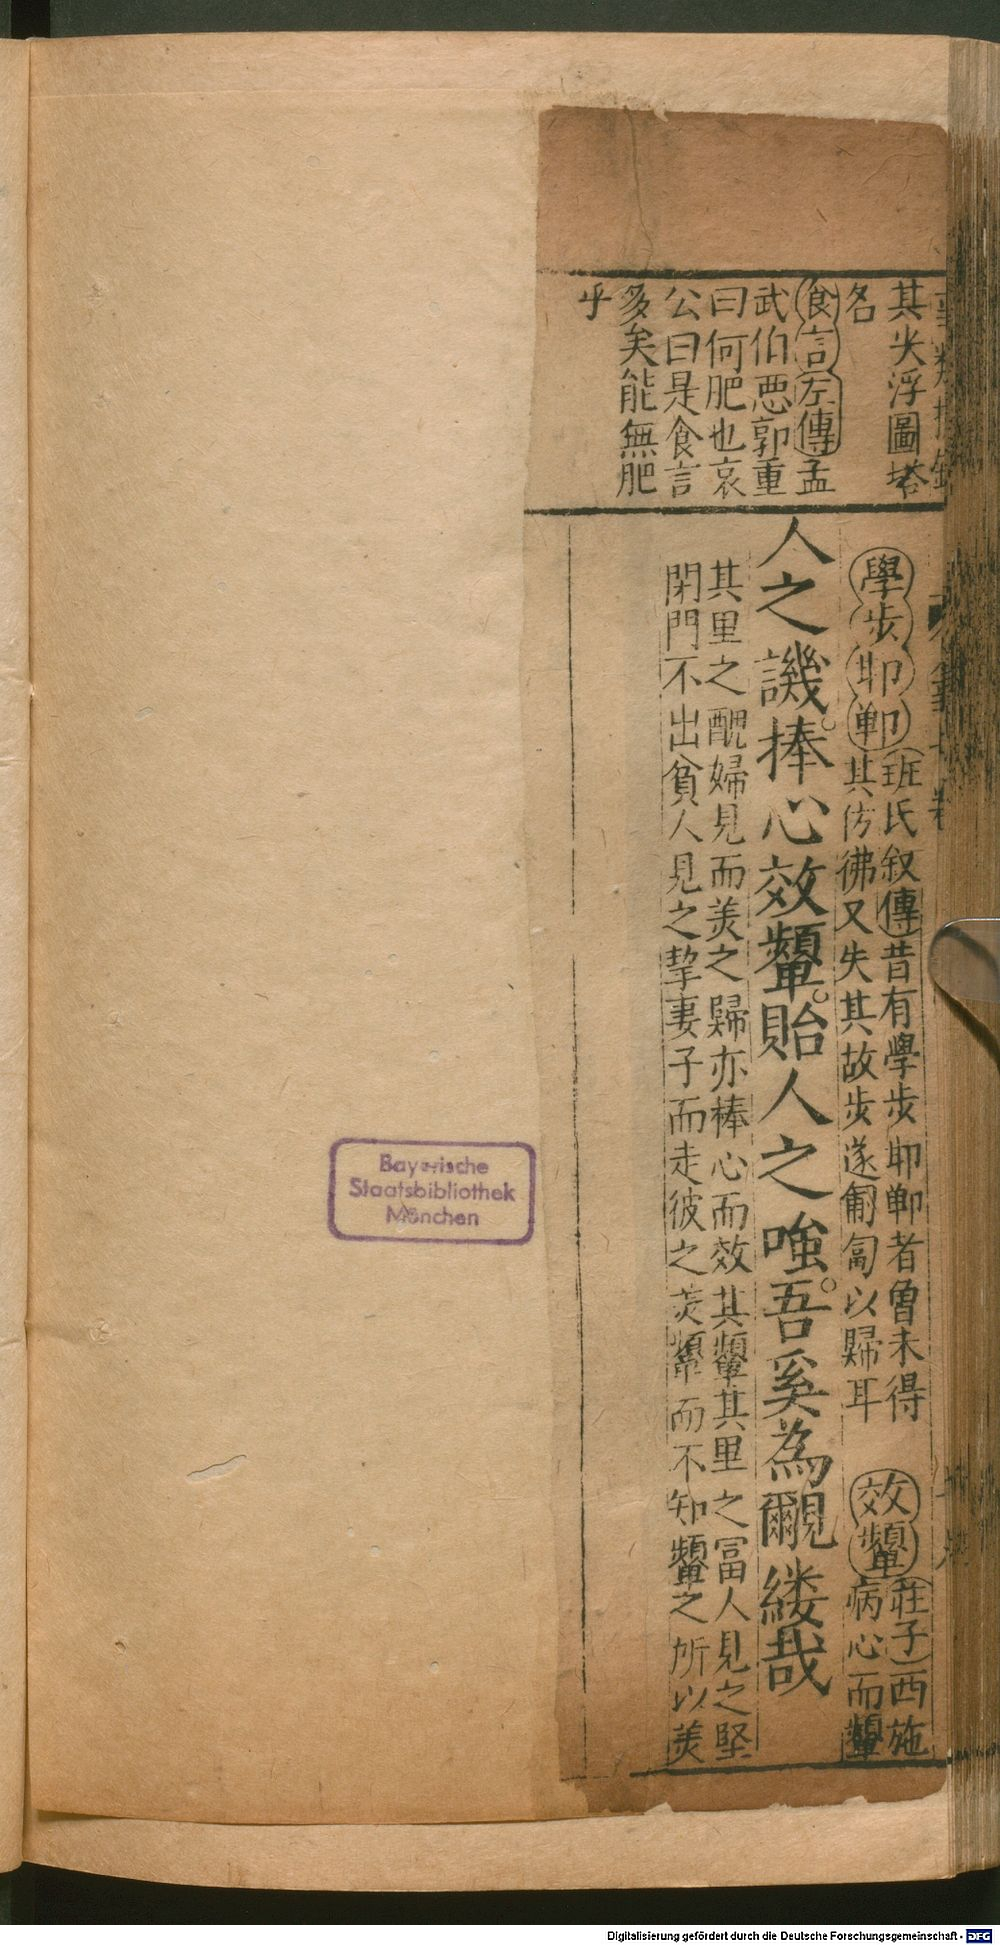 其尖浮圖塔
名
食言左傳孟
武伯惡郭重
曰何肥也哀
公曰是食言
多矣能無肥
乎
學步邯鄲班氏叙傳昔有學步邯鄲者曾未得
其彷彿又失其故步遂匍匐以歸耳
效顰莊子西施
病心而顰
人之譏捧心效顰貽人之嗤吾奚為覼縷哉
其里之醜婦見而羙之歸亦棒心而效其顰其里之冨人見之堅
閉門不出貧人見之挈妻子而走彼之羙顰而不知顰之所以羙
Bayerische
Staatsbibliothek
München
Digitalisierung gefördert durch die Deutsche Forschungsgemeinschaft - DFG